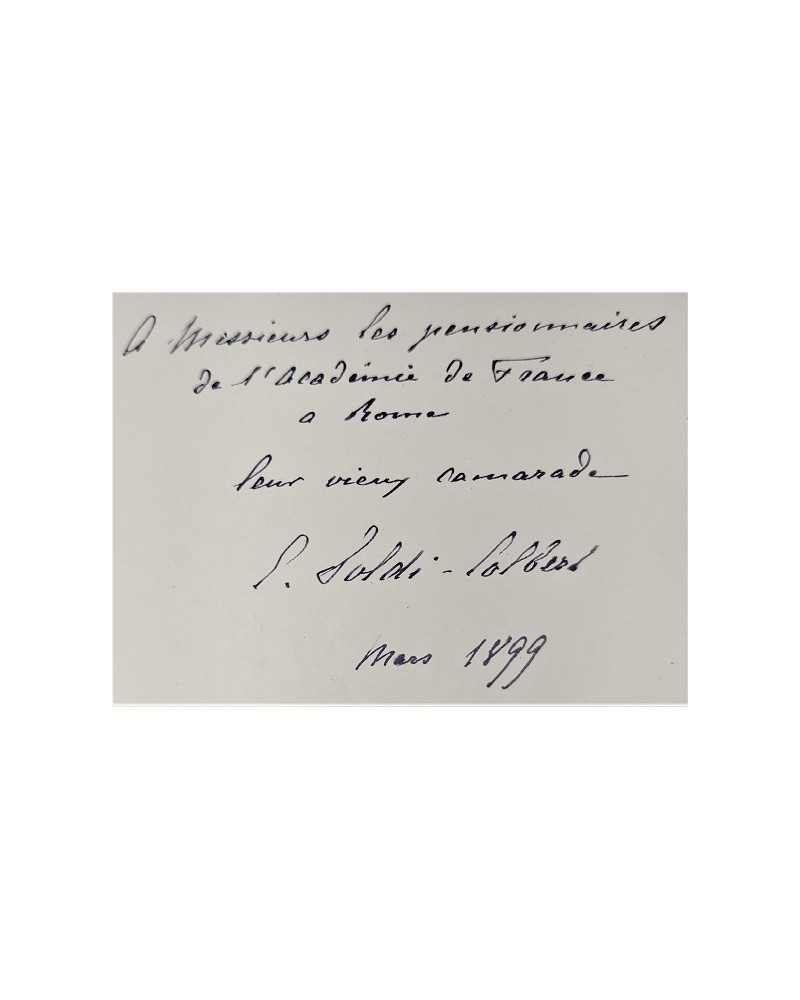 A Messieurs les pensionnaires
de l'Académie de France
a Rome
leur vieux camarade
E. Soldi-Colbert
Mars 1899